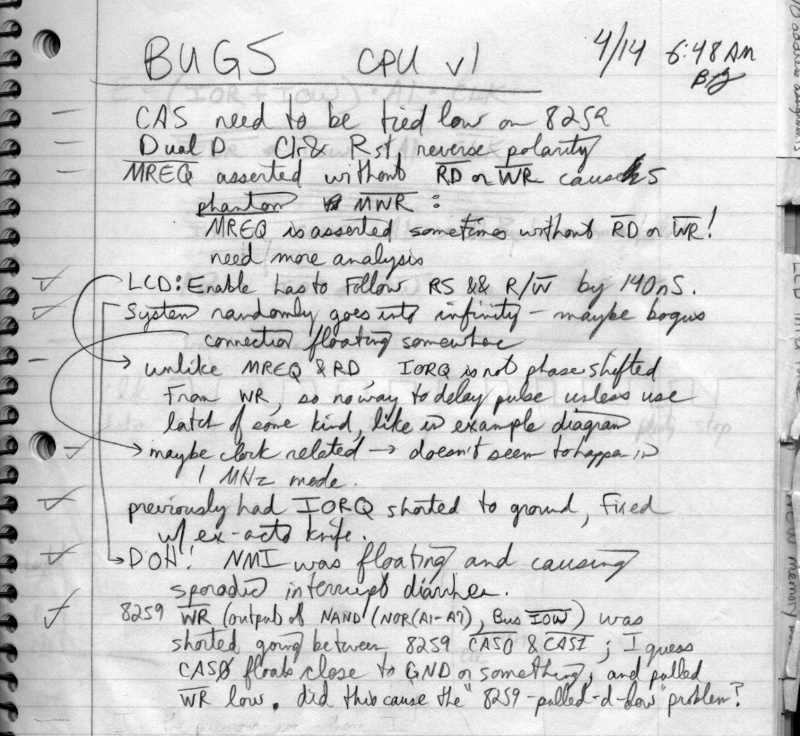 BUGS CPU v1 4/14 6:48 AM
CAS need to be tied low on 8259
Dual D Clr & Rst reverse polarity
MREQ asserted without RD or WR causes
phantom MWR :
MREQ is asserted sometimes without RD or WR!
need more analysis
LCD: Enable has to follow RS && R/W by 140nS.
System randomly goes into infinity – maybe bogus
connection floating somewhere
unlike MREQ & RD IORQ is not phase shifted
From WR, so no way to delay pulse unless use
latch of some kind, like in example diagram
maybe clock related → doesn't seem to happen in
1 MHz mode.
previously had IORQ shorted to ground, fixed
w/ ex-acto knife.
DOH! NMI was floating and causing
sporadic interrupt diarrhea.
8259 WR (output of NAND (NOR(A1-A7), Bus IOW) was
shorted going between 8259 CAS0 & CAS1 ; I guess
CASØ floats close to GND or something, and pulled
WR low. did this cause the "8259-pulled-d-low" problem?
LCD
new memory